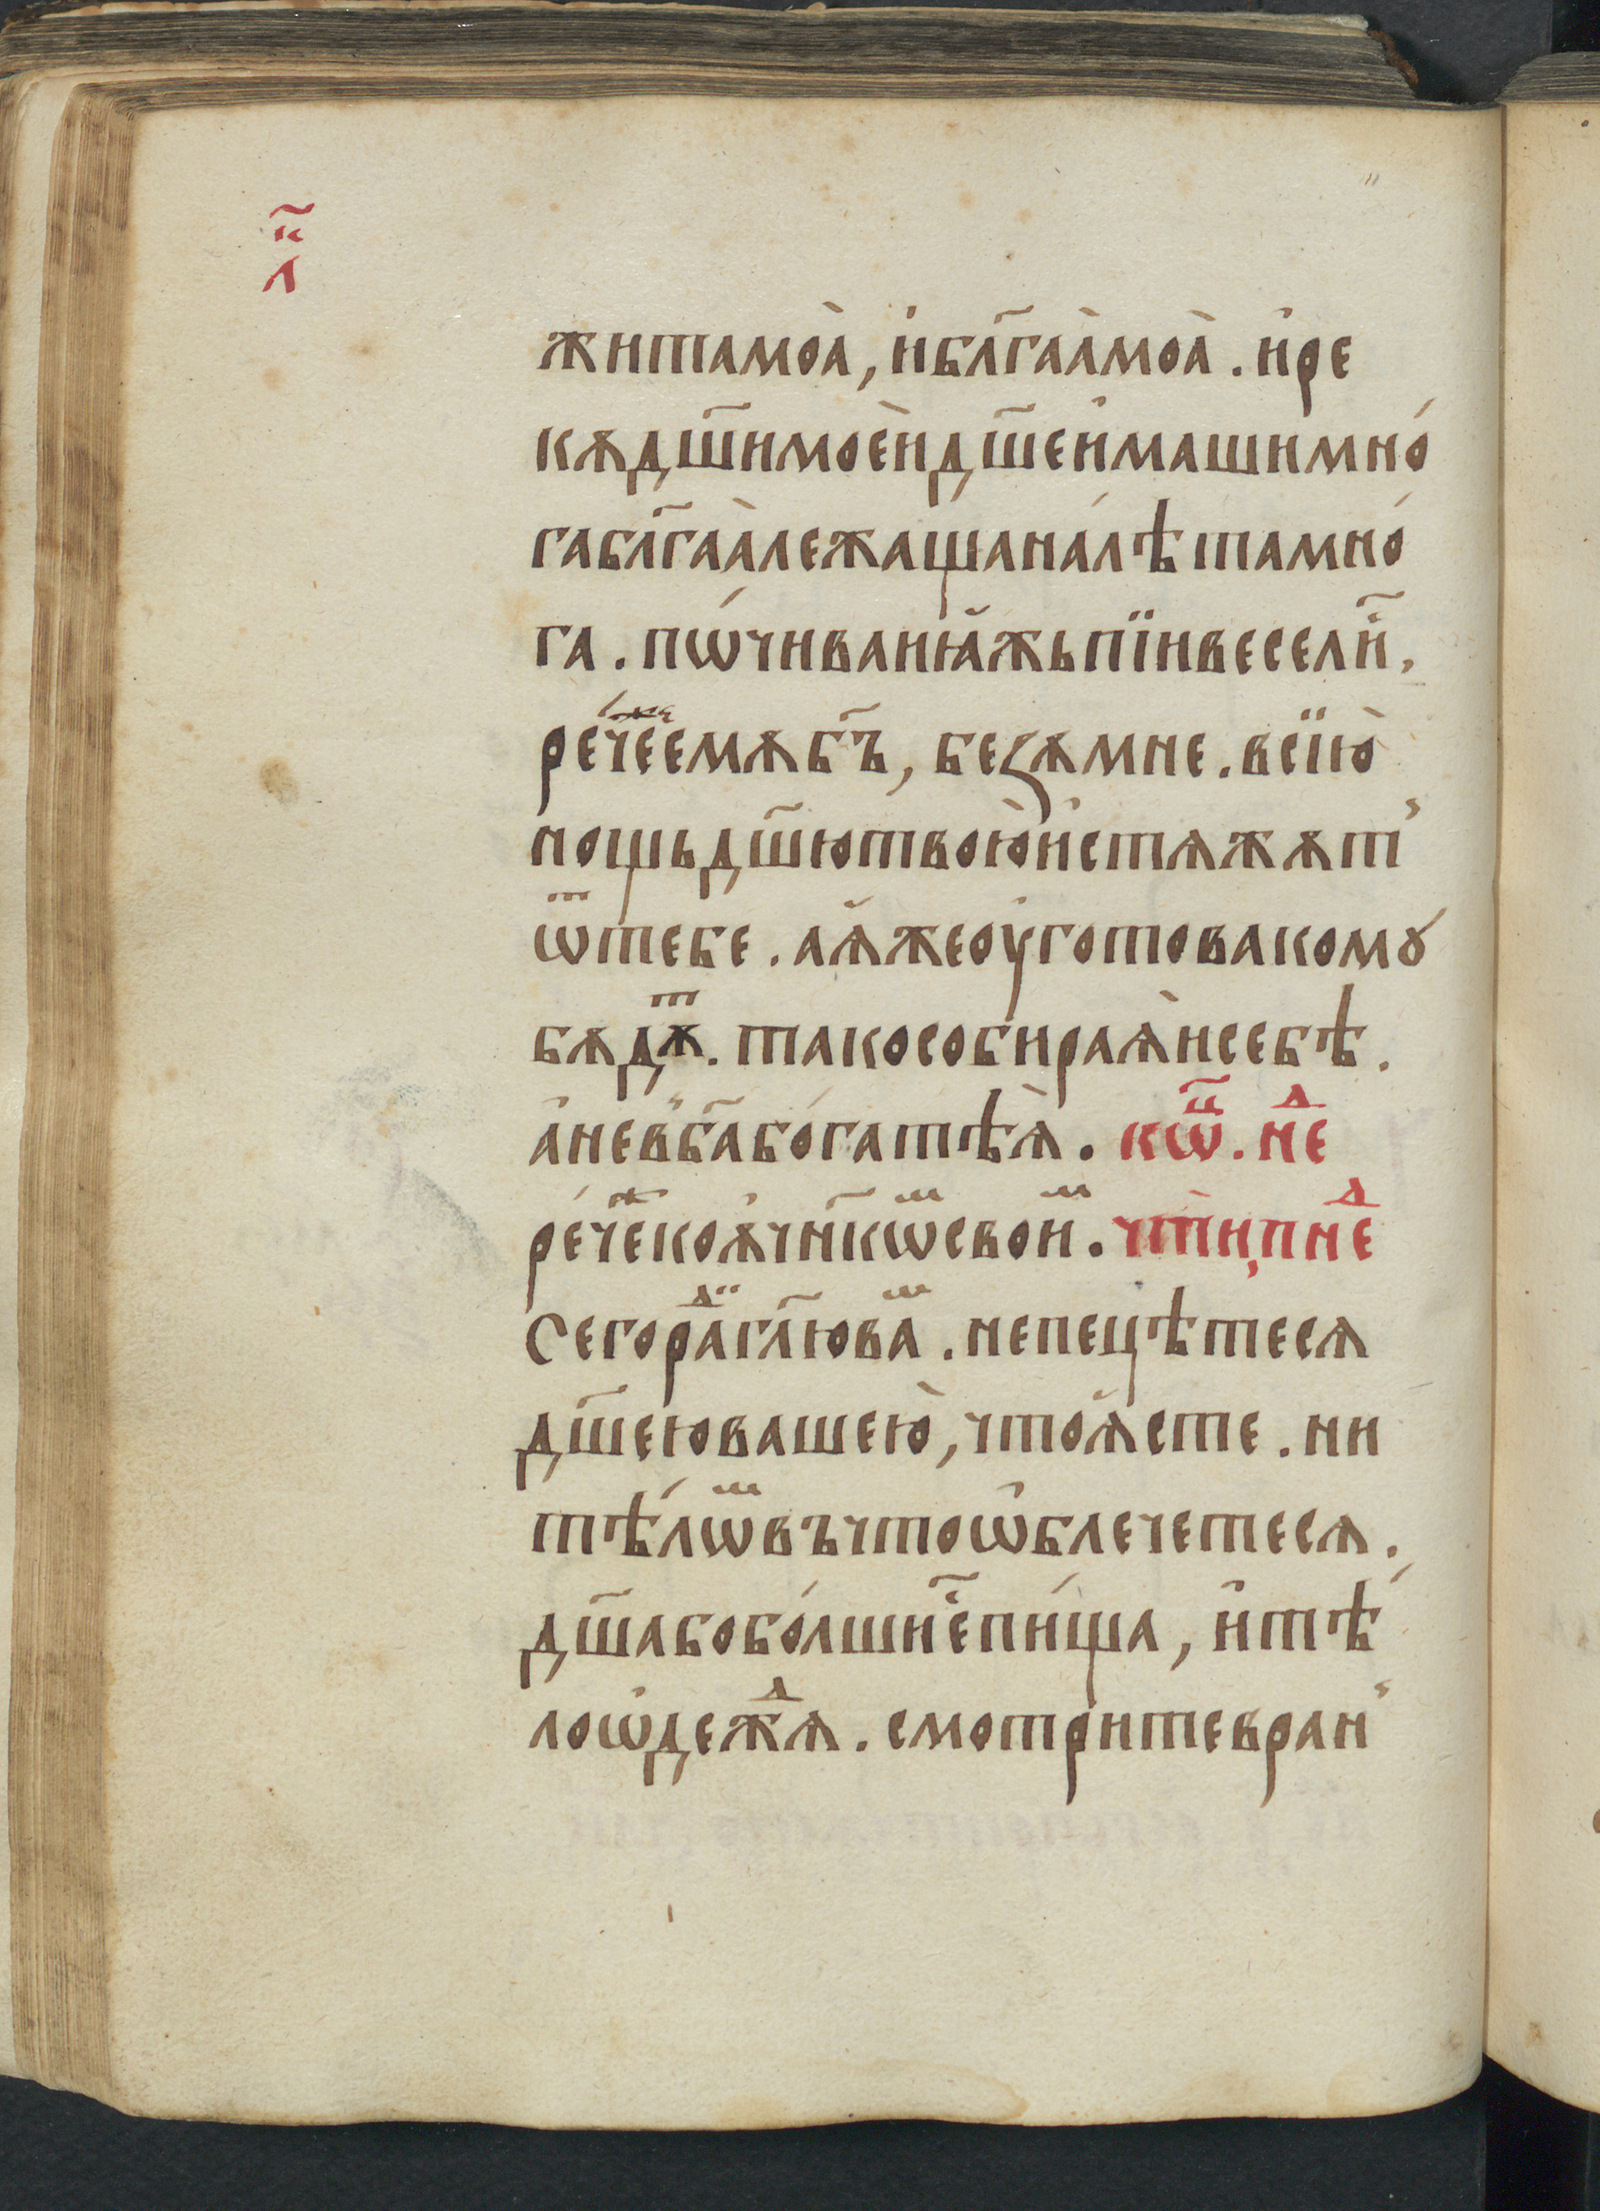 л҃к
житамоа̀, и҆бл҃гаа̀моа̀. и҆ре
кѫдш҃имоеѝдш҃еи҆машимно́
габл҃гаа̀лежащанал́ѣтамно́
га. пѡ́чиваниꙗ̆жьпїивесели҃.
ре́чеⷤемѫбг҃ъ, безѫмне. всїю̀
нощьдш҃ютвою̀и҆стѧжѫт̾
ѿтебе. аꙗ҆жеоу҆готовакомꙋ
бѫдѫⷮ. такособираѧ̀исебѣ.
а҆невб҃або́гатѣѧ̀. кѡⷩ҇. неⷣ
ре́чеⷤкоѧ҆чн҃кѡⷨсвои́ⷨ. чт̀и, пнеⷣ
Сегораⷣгл҃ювⷨа. непецѣтесѧ
дш҃еювашею̀, что̆ѧсте. ни
тѣ́лѡⷨвъчтоѡ҆блечетесѧ.
дш҃абобо́лшие҃пи́ща, и҆тѣ́
лоѡ҆дежⷣѧ. смотритевран̾